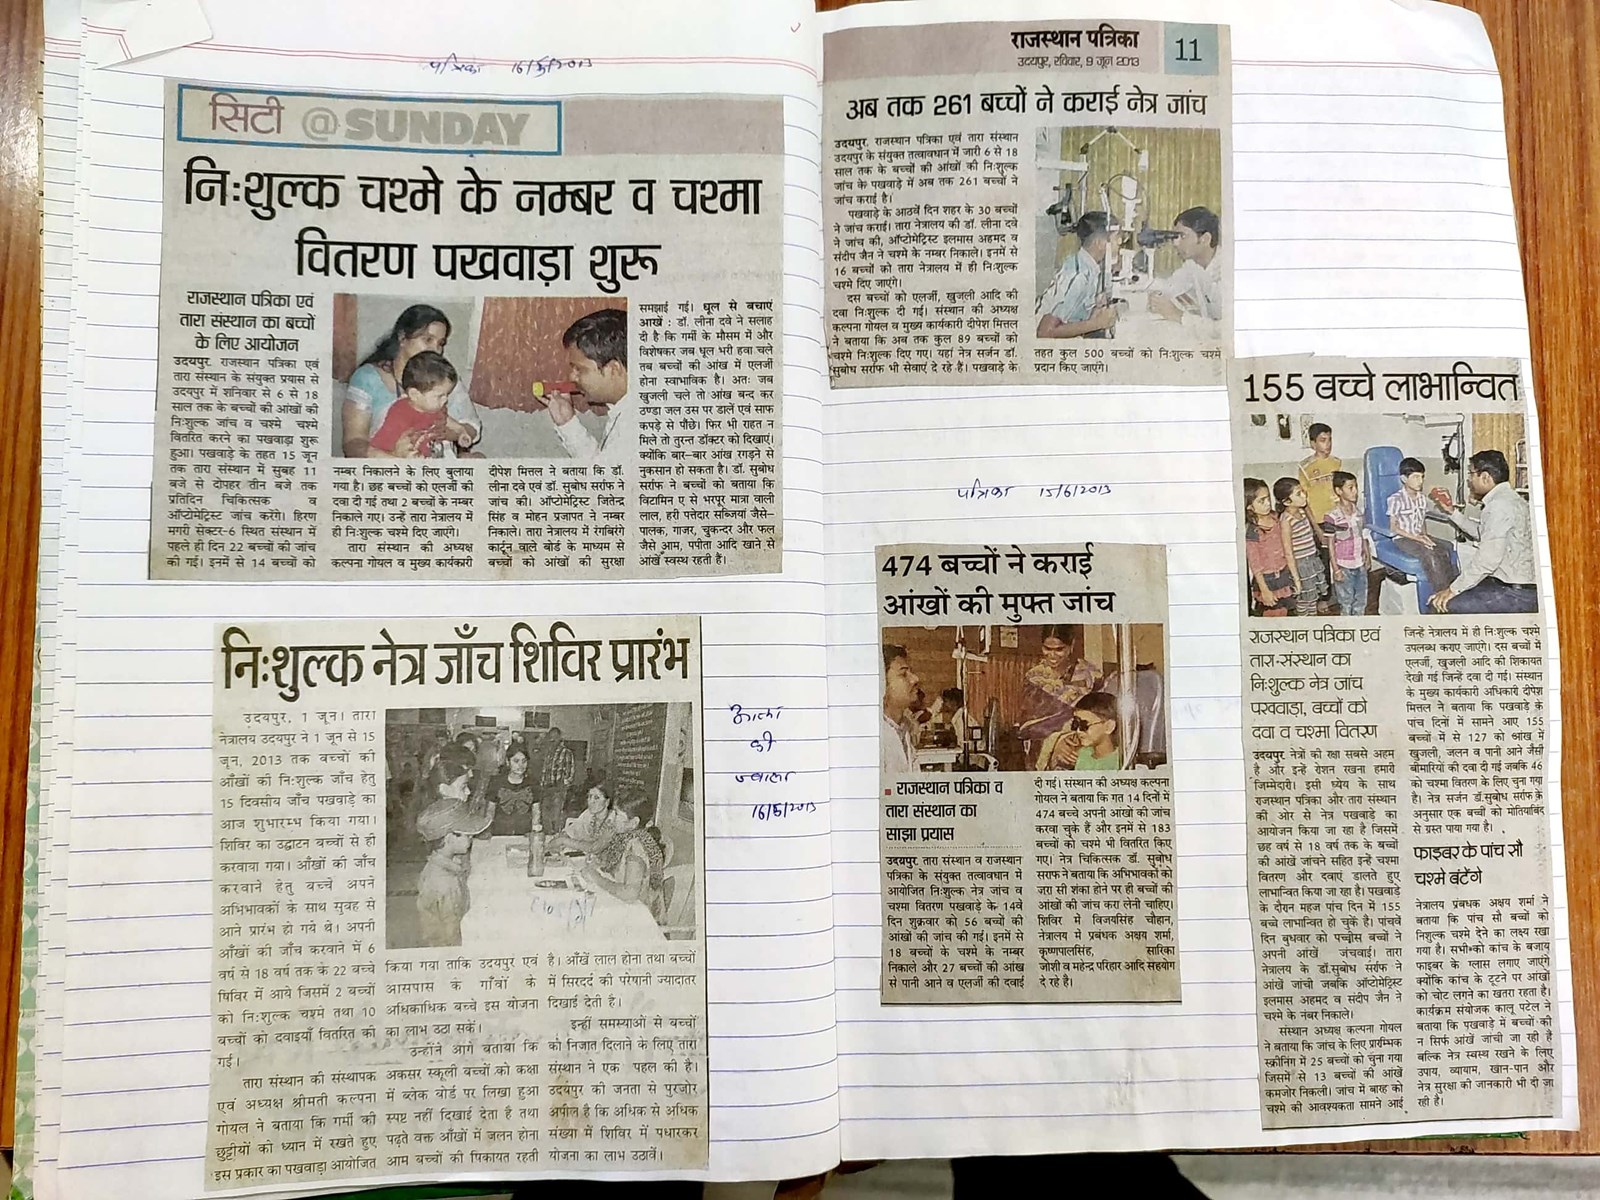 पत्रिका 16/6/2013
सिटी @SUNDAY
निःशुल्क चश्मे के नम्बर व चश्मा
वितरण पखवाड़ा शुरू
राजस्थान पत्रिका एवं
तारा संस्थान का बच्चों
के लिए आयोजन
उदयपुर. राजस्थान पत्रिका एवं
तारा संस्थान के संयुक्त प्रयास से
उदयपुर में शनिवार से 6 से 18
साल तक के बच्चों की आंखों की
निःशुल्क जांच व चश्मे चश्मे
वितरित करने का पखवाड़ा शुरू
हुआ। पखवाड़े के तहत 15 जून
तक तारा संस्थान में सुबह 11
बजे से दोपहर तीन बजे तक
प्रतिदिन चिकित्सक व
ऑप्टोमेट्रिस्ट जांच करेंगे। हिरण
मगरी सेक्टर-6 स्थित संस्थान में
पहले ही दिन 22 बच्चों की जांच
की गई। इनमें से 14 बच्चों को
नम्बर निकालने के लिए बुलाया
गया है। छह बच्चों को एलर्जी की
दवा दी गई तथा 2 बच्चों के नम्बर
निकाले गए। उन्हें तारा नेत्रालय में
ही निःशुल्क चश्मे दिए जाएंगे।
तारा संस्थान की अध्यक्ष
कल्पना गोयल व मुख्य कार्यकारी
दीपेश मित्तल ने बताया कि डॉ.
लीना दवे एवं डॉ. सुबोध सर्राफ ने
जांच की। ऑप्टोमेट्रिस्ट जितेन्द्र
सिंह व मोहन प्रजापत ने नम्बर
निकाले। तारा नेत्रालय में रंगबिरंगे
कार्टून वाले बोर्ड के माध्यम से
बच्चों को आंखों की सुरक्षा
समझाई गई। धूल से बचाएं
आखें : डॉ. लीना दवे ने सलाह
दी है कि गर्मी के मौसम में और
विशेषकर जब धूल भरी हवा चले
तब बच्चों की आंख में एलर्जी
होना स्वाभाविक है। अतः जब
खुजली चले तो आंख बन्द कर
ठण्डा जल उस पर डालें एवं साफ
कपड़े से पौंछे। फिर भी राहत न
मिले तो तुरन्त डॉक्टर को दिखाएं।
क्योंकि बार-बार आंख रगड़ने से
नुकसान हो सकता है। डॉ. सुबोध
सर्राफ ने बच्चों को बताया कि
विटामिन ए से भरपूर मात्रा वाली
लाल, हरी पत्तेदार सब्जियां जैसे-
पालक, गाजर, चुकन्दर और फल
जैसे आम, पपीता आदि खाने से
आंखें स्वस्थ रहती हैं।
निःशुल्क नेत्र जाँच शिविर प्रारंभ
उदयपुर, 1 जून। तारा
नेत्रालय उदयपुर ने 1 जून से 15
जून, 2013 तक बच्चों की
आँखों की निःशुल्क जाँच हेतु
15 दिवसीय जाँच पखवाड़े का
आज शुभारम्भ किया गया।
शिविर का उद्घाटन बच्चों से ही
करवाया गया। आँखों की जाँच
करवाने हेतु बच्चे अपने
अभिभावकों के साथ सुबह से
आने प्रारंभ हो गये थे। अपनी
आँखों की जाँच करवाने में 6
वर्ष से 18 वर्ष तक के 22 बच्चे
षिविर में आये जिसमें 2 बच्चों
को निःशुल्क चश्मे तथा 10
बच्चों को दवाइयाँ वितरित की
गई।
तारा संस्थान की संस्थापक
एवं अध्यक्ष श्रीमती कल्पना
गोयल ने बताया कि गर्मी की
छुट्टीयों को ध्यान में रखते हुए
इस प्रकार का पखवाड़ा आयोजित
किया गया ताकि उदयपुर एवं
आसपास के गाँवों के
अधिकाधिक बच्चे इस योजना
का लाभ उठा सकें।
उन्होंने आगे बताया कि
अकसर स्कूली बच्चों को कक्षा
में ब्लेक बोर्ड पर लिखा हुआ
स्पष्ट नहीं दिखाई देता है तथा
पढ़ते वक्त आँखों में जलन होना
आम बच्चों की षिकायत रहती
है। आँखें लाल होना तथा बच्चों
में सिरदर्द की परेषानी ज्यादातर
दिखाई देती है।
इन्हीं समस्याओं से बच्चों
को निजात दिलाने के लिए तारा
संस्थान ने एक पहल की है।
उदयपुर की जनता से पुरजोर
अपील है कि अधिक से अधिक
संख्या में शिविर में पधारकर
योजना का लाभ उठावें।
की
ज्वाला
राजस्थान पत्रिका 11
उदयपुर, रविवार, 9 जून 2013
अब तक 261 बच्चों ने कराई नेत्र जांच
उदयपुर. राजस्थान पत्रिका एवं तारा संस्थान
उदयपुर के संयुक्त तत्वावधान में जारी 6 से 18
साल तक के बच्चों की आंखों की निःशुल्क
जांच के पखवाड़े में अब तक 261 बच्चों ने
जांच कराई है।
पखवाड़े के आठवें दिन शहर के 30 बच्चों
ने जांच कराई। तारा नेत्रालय की डॉ. लीना दवे
ने जांच की, ऑप्टोमेट्रिस्ट इलमास अहमद व
संदीप जैन ने चश्मे के नम्बर निकाले। इनमें से
16 बच्चों को तारा नेत्रालय में ही निःशुल्क
चश्मे दिए जाएंगे।
दस बच्चों को एलर्जी, खुजली आदि की
दवा निःशुल्क दी गई। संस्थान की अध्यक्ष
कल्पना गोयल व मुख्य कार्यकारी दीपेश मित्तल
ने बताया कि अब तक कुल 89 बच्चों को
चश्मे निःशुल्क दिए गए। यहां नेत्र सर्जन डॉ.
सुबोध सर्राफ भी सेवाएं दे रहे हैं। पखवाड़े के
तहत कुल 500 बच्चों को निःशुल्क चश्मे
प्रदान किए जाएंगे।
पत्रिका 15/6/2013
474 बच्चों ने कराई
आंखों की मुफ्त जांच
राजस्थान पत्रिका व
तारा संस्थान का
साझा प्रयास
उदयपुर. तारा संस्थान व राजस्थान
पत्रिका के संयुक्त तत्वावधान में
आयोजित निःशुल्क नेत्र जांच व
चश्मा वितरण पखवाड़े के 14वें
दिन शुक्रवार को 56 बच्चों की
आंखों की जांच की गई। इनमें से
18 बच्चों के चश्मे के नम्बर
निकाले और 27 बच्चों की आंख
से पानी आने व एलर्जी की दवाई
दी गई। संस्थान की अध्यक्ष कल्पना
गोयल ने बताया कि गत 14 दिनों में
474 बच्चे अपनी आंखों की जांच
करवा चुके हैं और इनमें से 183
बच्चों को चश्मे भी वितरित किए
गए। नेत्र चिकित्सक डॉ. सुबोध
सराफ ने बताया कि अभिभावकों को
जरा सी शंका होने पर ही बच्चों की
आंखों की जांच करा लेनी चाहिए।
शिविर में विजयसिंह चौहान,
नेत्रालय में प्रबंधक अक्षय शर्मा,
कृष्णपालसिंह, सारिका
जोशी व महेन्द्र परिहार आदि सहयोग
दे रहे है।
155 बच्चे लाभान्वित
राजस्थान पत्रिका एवं
तारा-संस्थान का
निःशुल्क नेत्र जांच
पखवाड़ा, बच्चों को
दवा व चश्मा वितरण
उदयपुर नेत्रों की रक्षा सबसे अहम
है और इन्हें रोशन रखना हमारी
जिम्मेदारी। इसी ध्येय के साथ
राजस्थान पत्रिका और तारा संस्थान
की ओर से नेत्र पखवाड़े का
आयोजन किया जा रहा है जिसमें
छह वर्ष से 18 वर्ष तक के बच्चों
की आंखें जांचने सहित इन्हें चश्मा
वितरण और दवाएं डालते हुए
लाभान्वित किया जा रहा है। पखवाड़े
के दौरान महज पांच दिन में 155
बच्चे लाभान्वित हो चुके हैं। पांचवें
दिन बुधवार को पच्चीस बच्चों ने
अपनी आंखें जंचवाई। तारा
नेत्रालय के डॉ.सुबोध सर्राफ ने
आंखें जांची जबकि ऑप्टोमेट्रिस्ट
इलमास अहमद व संदीप जैन ने
चश्मे के नंबर निकाले।
संस्थान अध्यक्ष कल्पना गोयल
ने बताया कि जांच के लिए प्रारम्भिक
स्क्रीनिंग में 25 बच्चों को चुना गया
जिसमें से 13 बच्चों की आंखें
कमजोर निकली। जांच में बारह को
चश्मे की आवश्यकता सामने आई
जिन्हें नेत्रालय में ही निःशुल्क चश्मे
उपलब्ध कराए जाएंगे। दस बच्चों में
एलर्जी, खुजली आदि की शिकायत
देखी गई जिन्हें दवा दी गई। संस्थान
के मुख्य कार्यकारी अधिकारी दीपेश
मित्तल ने बताया कि पखवाड़े के
पांच दिनों में सामने आए 155
बच्चों में से 127 को आंख में
खुजली, जलन व पानी आने जैसी
बीमारियों की दवा दी गई जबकि 46
को चश्मा वितरण के लिए चुना गया
है। नेत्र सर्जन डॉ.सुबोध सर्राफ के
अनुसार एक बच्चों को मोतियाबिंद
से ग्रस्त पाया गया है।
फाइबर के पांच सौ
चश्मे बंटेंगे
नेत्रालय प्रबंधक अक्षय शर्मा ने
बताया कि पांच सौ बच्चों को
निशुल्क चश्मे देने का लक्ष्य रखा
गया है। सभी को कांच के बजाय
फाइबर के ग्लास लगाए जाएंगे
क्योंकि कांच के टूटने पर आंखों
को चोट लगने का खतरा रहता है।
कार्यक्रम संयोजक कालू पटेल ने
बताया कि पखवाड़े में बच्चों की
न सिर्फ आंखें जांची जा रही हैं
बल्कि नेत्र स्वस्थ रखने के लिए
उपाय, व्यायाम, खान-पान और
नेत्र सुरक्षा की जानकारी भी दी जा
रही है।